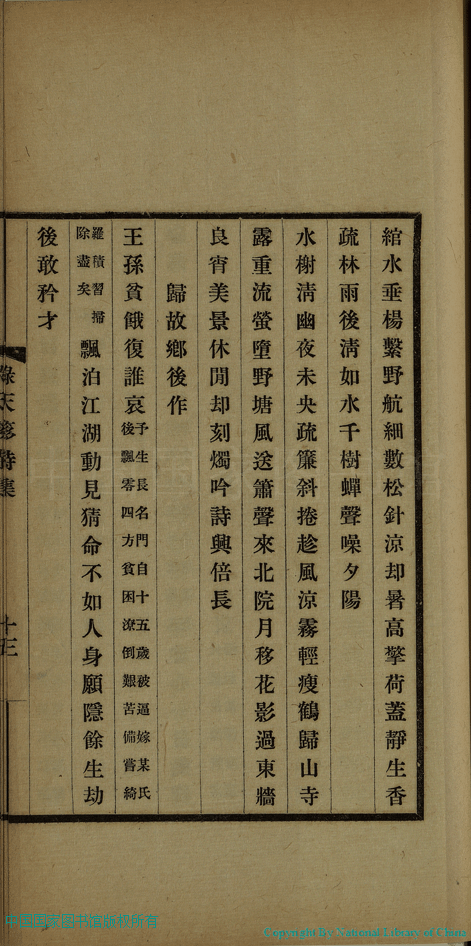 綰水垂楊繫野航細數松針涼却暑高擎荷蓋靜生香
疏林雨後淸如水千樹蟬聲噪夕陽
水榭淸幽夜未央疏簾斜捲趁風涼霧輕瘦鶴歸山寺
露重流螢墮野塘風送簫聲來北院月移花影過東牆
良宵美景休閒却刻燭吟詩興倍長
歸故鄉後作
王孫貧餓復誰哀予生長名門自十五歲被逼嫁某氏後飄零四方貧困潦倒艱苦備嘗綺
羅積習掃除盡矣飄泊江湖動見猜命不如人身願隱餘生劫
後敢矜才
天 詩集
十三
Copyright By National Library of China